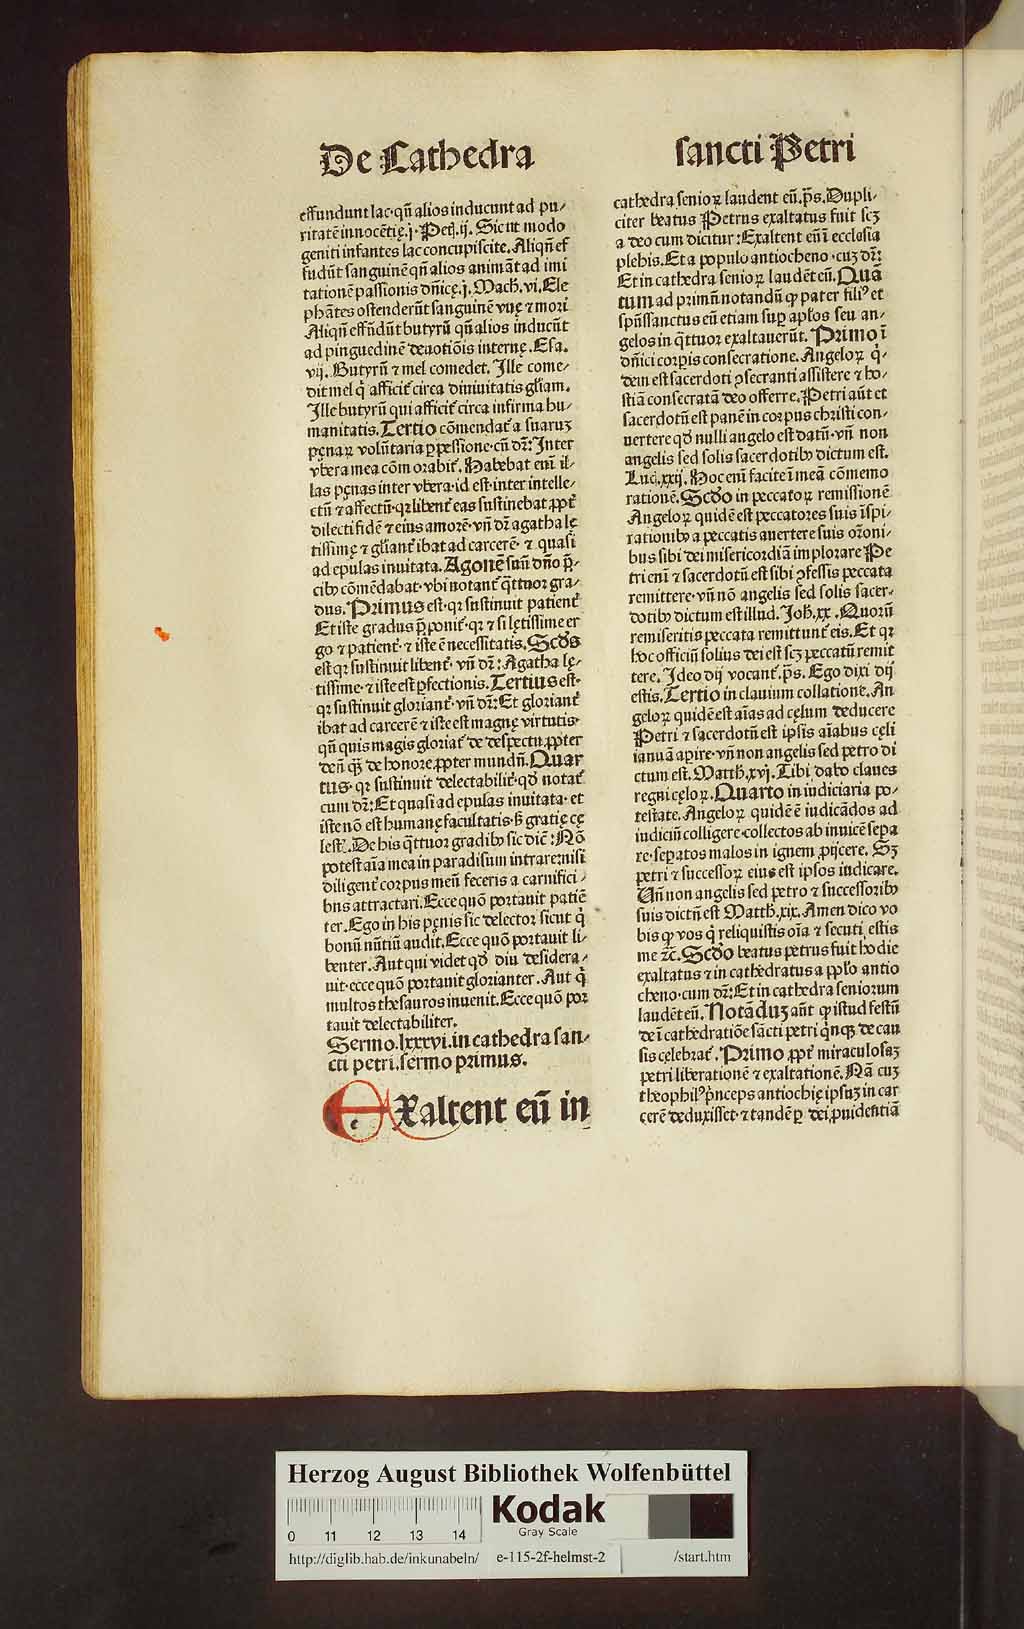 De Cathedra
sancti Petri
effundunt lac·qn̄ alios inducunt ad pu⸗
ritatē innocētię.j·Petꝶ.ij. Sicut modo
geniti infantes lac concupiscite. Aliqn̄ ef
fudūt sanguinē qn̄ alios animāt ad imi
tationē passionis dn̄icę.j. Mach. vi. Ele
phātes ostenderūt sanguinē vuę ⁊ mori
Aliqn̄ effūdūt butyrū qn̄ alios inducūt
ad pinguedinē deuotiōis internę. Esa.
vij. Butyrū ⁊ mel comedet. Ille come⸗
dit mel q̇ afficit᷑ circa diuinitatis gl̄iam.
Ille butyrū qui afficit᷑ circa infirma hu⸗
manitatis. Tertio cōmendat᷑ a suaruꝫ
pęnaꝝ volūtaria ꝑpessione·cū dr̄: Inter
vbera mea cōmorabit᷑. Habebat em̄ il⸗
las pęnas inter vbera·id est·inter intelle⸗
ctū ⁊ affectū·qꝛ libent᷑ eas sustinebat ꝓpt᷑
dilecti fidē ⁊ eius amorē·vn̄ dr̄ agatha lę
tissimę ⁊ gl̄iant᷑ ibat ad carcerē· ⁊ quasi
ad epulas inuitata. Agonē suū dn̄o p̄⸗
cibꝰ cōmēdabat·vbi notant᷑ q̄ttuor gra⸗
dus. Primus est·qꝛ sustinuit patient᷑
Et iste gradus p̄ponit᷑·qꝛ ⁊ si lętissime er
go ⁊ patient᷑·⁊ iste ē necessitatis. Scd̓s
est qꝛ sustinuit libent᷑·vn̄ dr̄: Agatha lę⸗
tissime·⁊ iste est ꝑfectionis. Tertius est·
qꝛ sustinuit gloriant᷑·vn̄ dr̄: Et gloriant᷑
ibat ad carcerē ⁊ iste est magnę virtutis·
qn̄ quis magis gloriat᷑ de despectu ꝓpter
deū ꝙ̄ de honore ꝓpter mundū. Quar
tus·qꝛ sustinuit delectabilit᷑·qd̓ notat᷑
cum dr̄: Et quasi ad epulas inuitata·et
iste nō est humanę facultatis·s̄ gratię cę
lest᷑. De his q̄ttuor gradibꝰ sic dic̄: Nō
potest aīa mea in paradisum intrare:nisi
diligent᷑ corpus meū feceris a carnifici⸗
bus attractari. Ecce quō portauit patiē
ter. Ego in his pęnis sic delector sicut q̇
bonū nūtiū audit. Ecce quō portauit li⸗
benter. Aut qui videt qd̓ diu desidera⸗
uit·ecce quō portauit glorianter. Aut q̇
multos thesauros inuenit. Ecce quō por
tauit delectabiliter.
Sermo.lxxxvi.in cathedra san⸗
cti petri.sermo primus.
EXaltent eū in
cathedra senioꝝ laudent eū.p̄s. Dupli⸗
citer beatus Petrus exaltatus fuit scꝫ
a deo cum dicitur: Exaltent eūi ecclesia
plebis. Et a populo antiocheno·cuꝫ dr̄:
Et in cathedra senioꝝ laudēt eū. Quā
tum ad primū notandū ꝙ pater filiꝰ et
spūssanctus eū etiam suꝑ apl̄os seu an⸗
gelos in q̄ttuor exaltauerūt. Primo ī
dn̄ici corꝑis consecratione. Angeloꝝ q̇⸗
dem est sacerdoti ꝯsecranti assistere ⁊ ho⸗
stiā consecratā deo offerre. Petri aūt et
sacerdotū est panē in corpus christi con⸗
uertere qd̓ nulli angelo est datū·vn̄ non
angelis sed solis sacerdotibꝰ dictum est.
Luc̄.xxij. Hoc em̄ facite ī meā cōmemo
rationē. Scd̓o in peccatoꝝ remissionē
Angeloꝝ quidē est peccatores suis īspi⸗
rationibꝰ a peccatis auertere suis or̄oni⸗
bus sibi dei misericordiā implorare Pe
tri em̄ ⁊ sacerdotū est sibi ꝯfessis peccata
remittere·vn̄ nō angelis sed solis sacer⸗
dotibꝰ dictum est illud. Joh̄.xx. Quorū
remiseritis peccata remittunt᷑ eis. Et qꝛ
hoc officiū solius dei est scꝫ peccatū remit
tere. Ideo dij vocant᷑.p̄s. Ego dixi dij
estis. Tertio in clauium collatione. An
geloꝝ quidē est aīas ad cęlum deducere
Petri ⁊ sacerdotū est ipsis aīabus cęli
ianuā aꝑire·vn̄ non angelis sed petro di
ctum est. Matth̄.xvj. Tibi dabo claues
regni cęloꝝ. Quarto in iudiciaria po⸗
testate. Angeloꝝ quidē ē iudicādos ad
iudiciū colligere·collectos ab inuicē seꝑa
re·seꝑatos malos in ignem ꝓijcere. Sꝫ
petri ⁊ successoꝝ eius est ipsos iudicare.
Un̄ non angelis sed petro ⁊ successoribꝰ
suis dictū est Matth̄.xix. Amen dico vo
bis ꝙ vos q̇ reliquistis oīa ⁊ secuti estis
me ⁊c̄. Scd̓o beatus petrus fuit hodie
exaltatus ⁊ in cathedratus a ppl̓o antio
cheno·cum dr̄: Et in cathedra seniorum
laudēt eū. Notāduꝫ aūt ꝙ istud festū
de ī cathedratiōe sācti petri q̇nqꝫ de cau
sis celebrat᷑. Primo ꝓpt᷑ miraculosaꝫ
petri liberationē ⁊ exaltationē. Nā cuꝫ
theophilꝰ p̓nceps antiochię ipsuꝫ in car
cerē deduxisset·⁊ tandē ꝑ dei ꝓuidentiā
Herzog August Bibliothek Wolfenbüttel
Kodak
Gray Scale
0 11 12 13 14
http://diglib.hab.de/inkunabeln/ e-115-2f-helmst-2 /start.htm